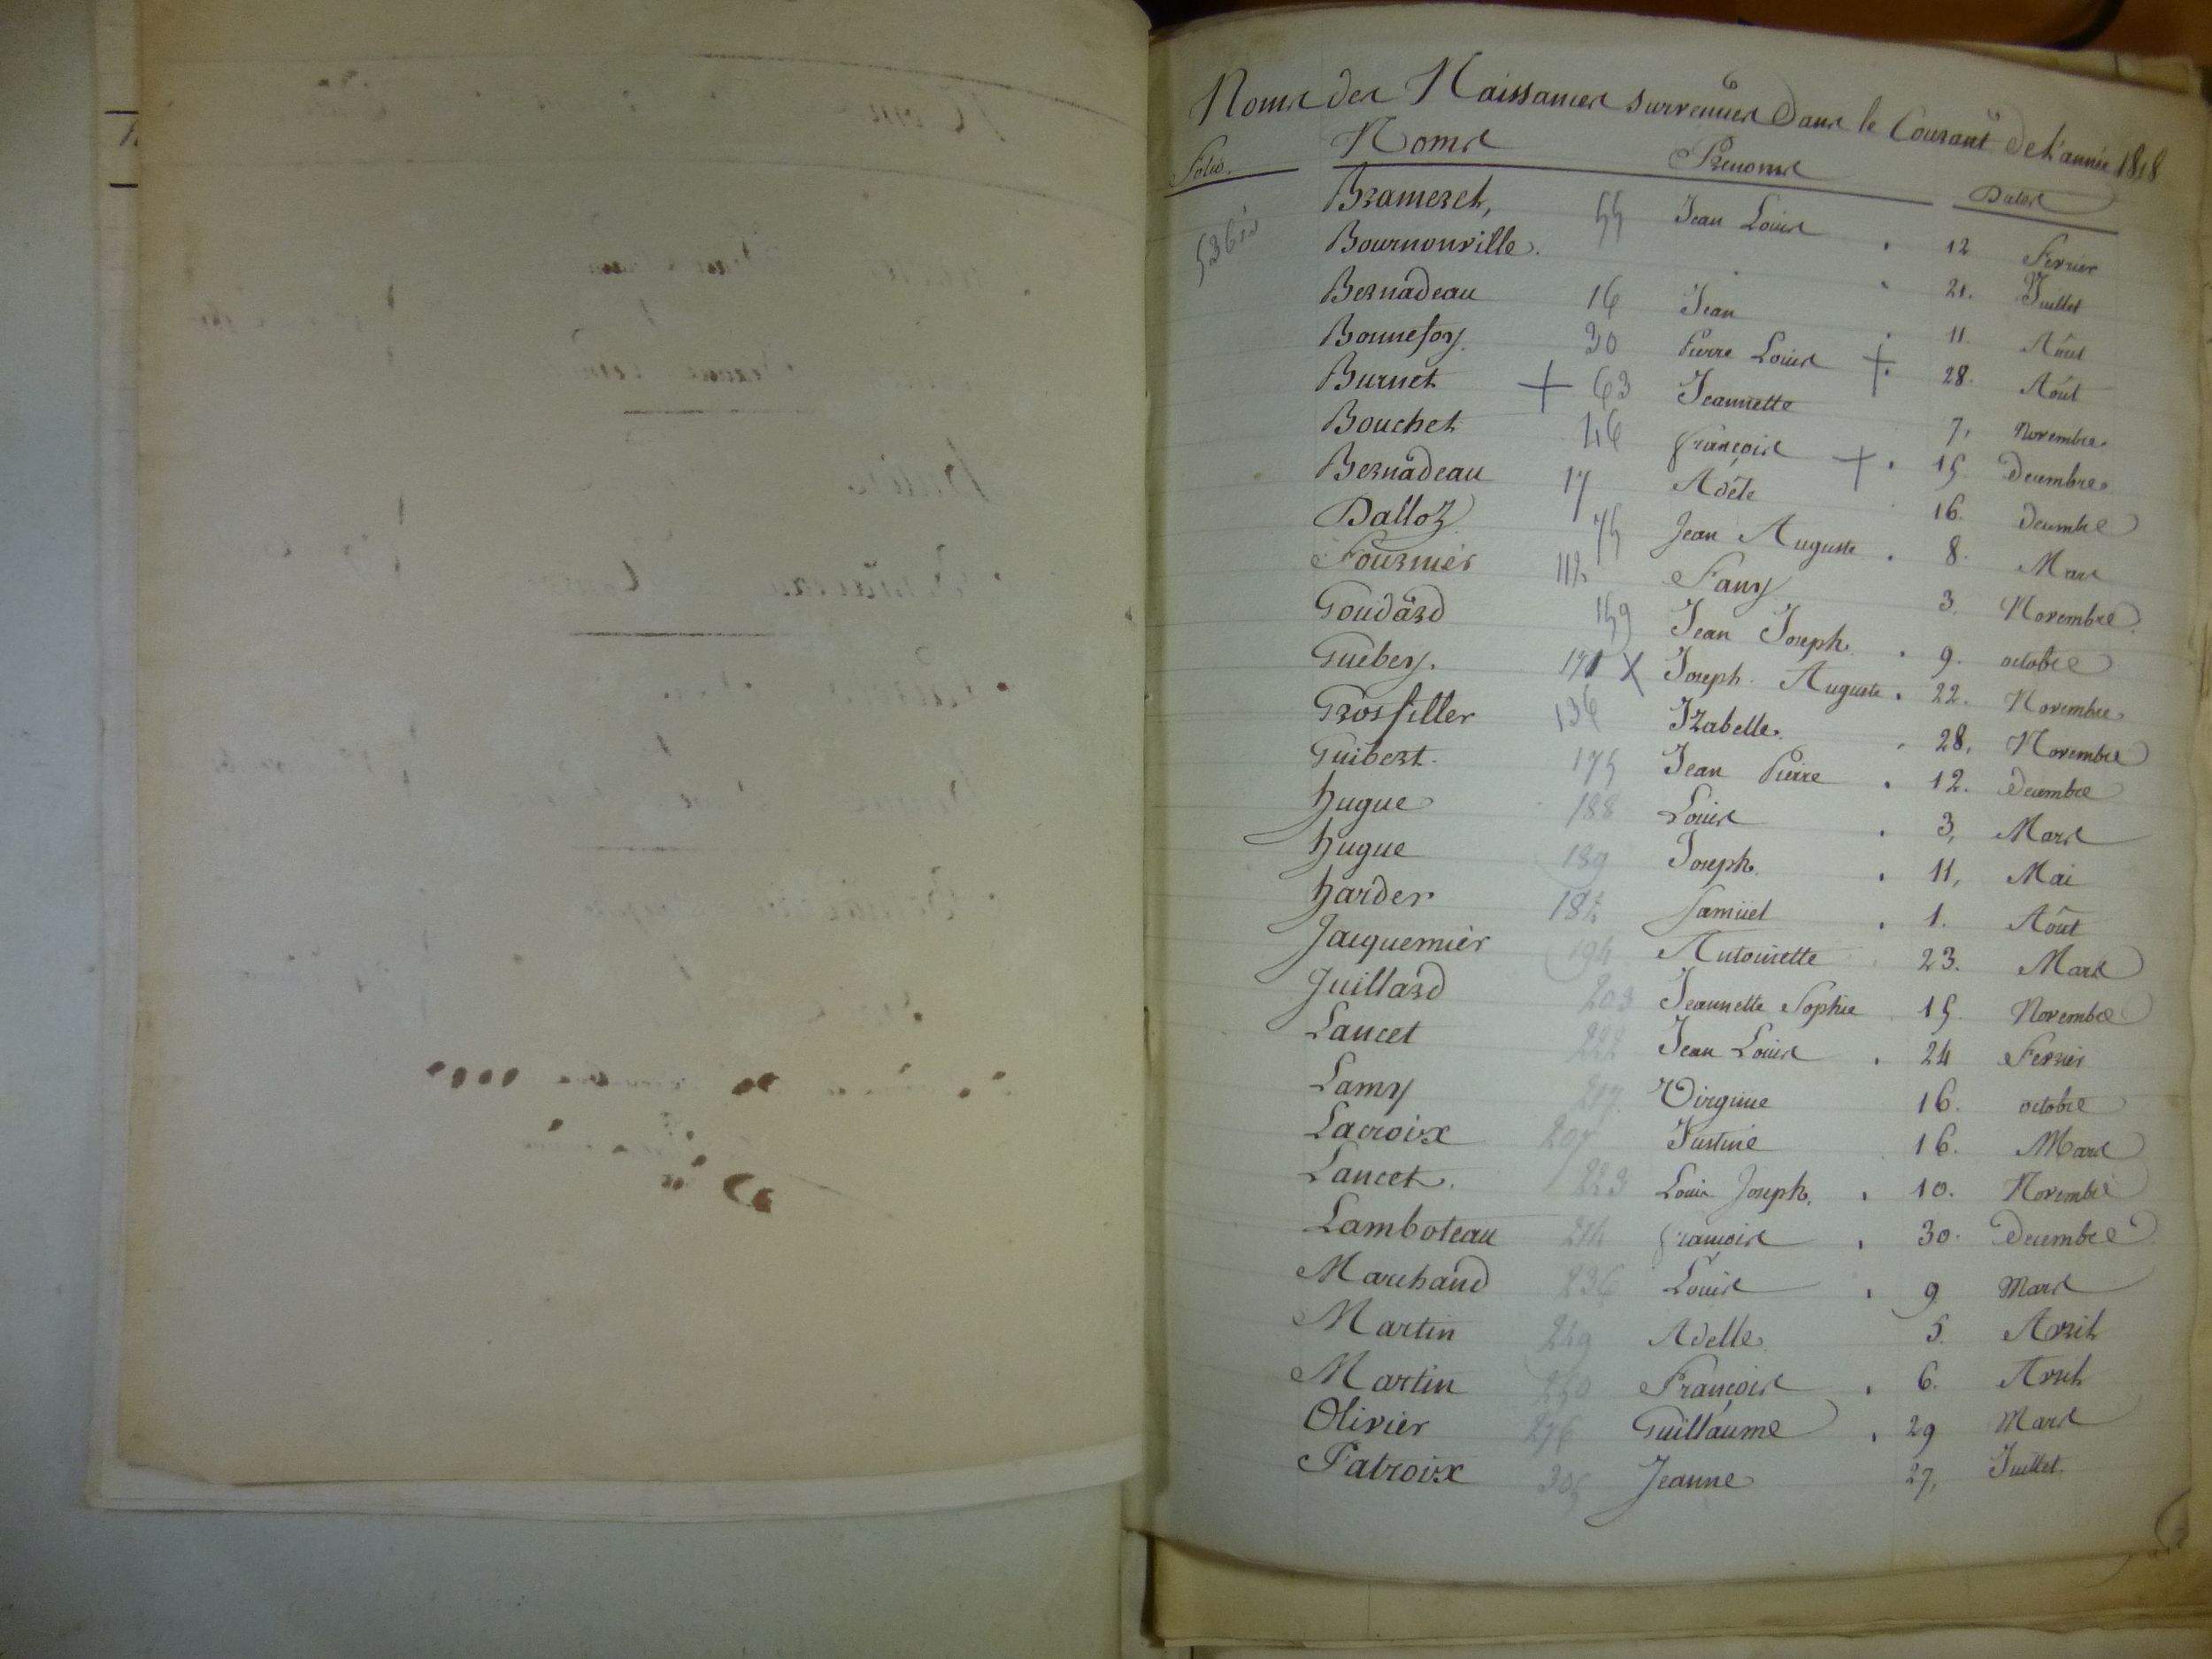 Noms des Naissances survenues Dans le Courant de l'année 1818
Folio. Noms Prenoms Dates
Brameret, 55 Jean Louis 12 Fevrier
53 bis Bournonville. 21. Juillet
Bernadeau 16 Jean 11 Août
Bonnefoy. 30 Pierre Louis + 28. Août
Burnet + 63 Jeannette 7, Novembre
Bouchet 46 françois + 15. Decembre
Bernadeau 17 Adéle 16. Decembre
Dalloz 75 Jean Auguste 8. Mars
Fournier 114 Fany 3. Novembre
Goudard 159 Jean Joseph 9. octobre
Guebey. 171 X Joseph Auguste 22. Novembre
Grosfiller 136 Izabelle 28, Novembre
Guibert. 175 Jean Pierre 12. Decembre
hugue 188 Louis 3, Mars
hugue 189 Joseph 11, Mai
harder 184 Samuel 1. Août
Jacquemier 194 Antoinette 23. Mars
Juillard 203 Jeannette Sophie 15. Novembre
Lancet 222 Jean Louis 24 Fevrier
Lamy 217 Virginie 16. octobre
Lacroix 207 Justine 16. Mars
Lancet. 223 Louis Joseph. 10. Novembre
Lamboteau 214 françois 30. Decembre
Marchand 236 Louis 9 Mars
Martin 249 Adelle 5. Avril
Martin 250 François 6. Avril
Olivier 276 Guillaume 29 Mars
Patroix 305 Jeanne 27, Juillet